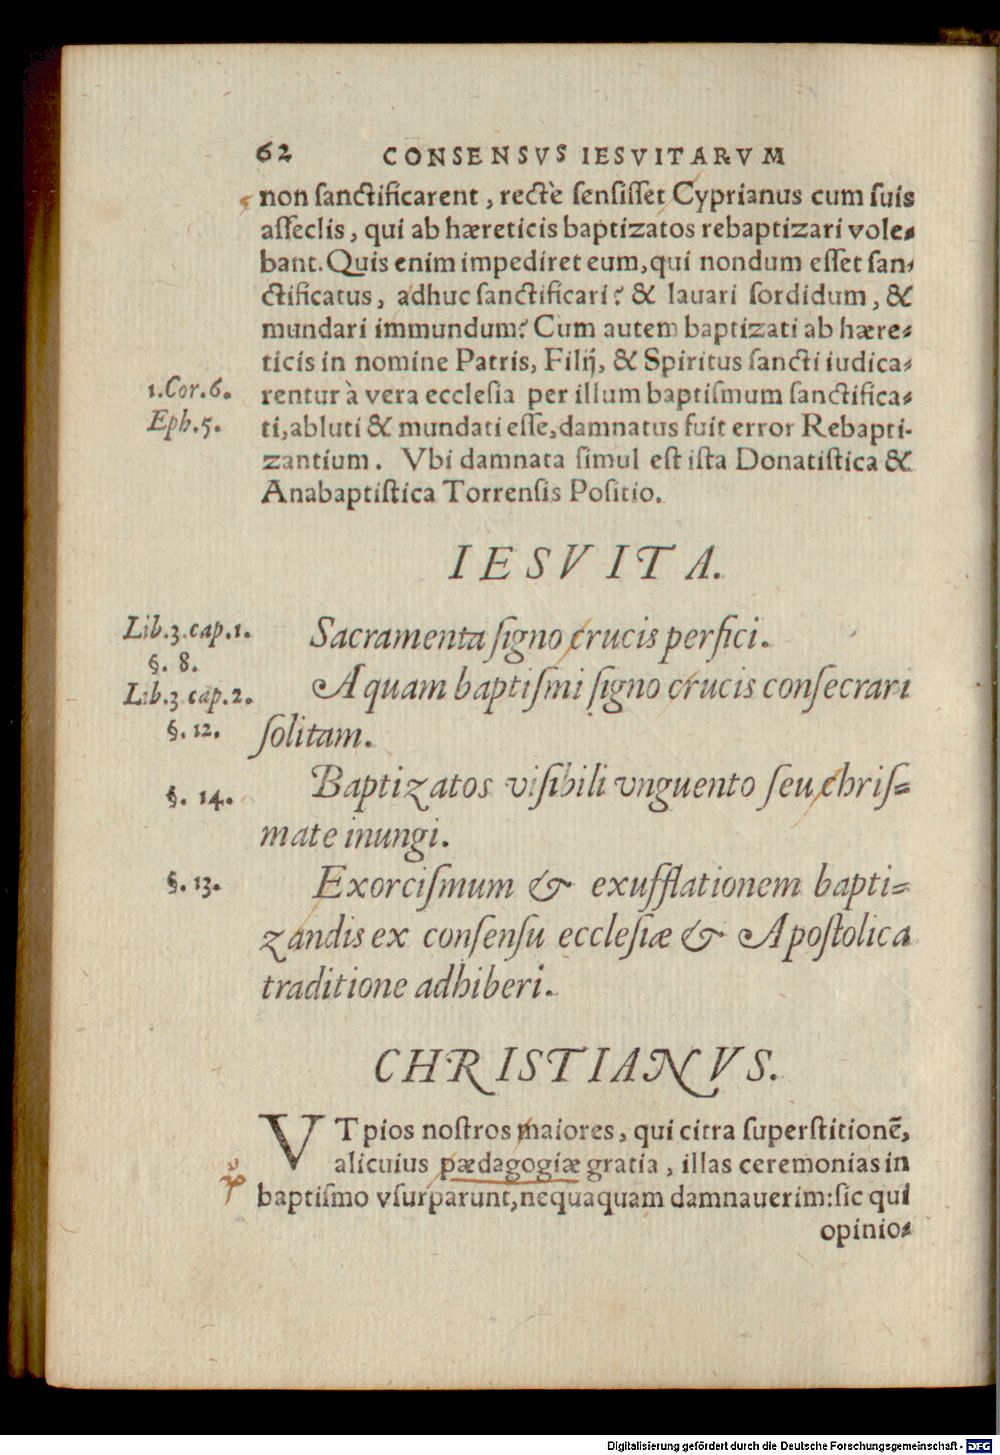 62 CONSENSVS IESVITARVM
non sanctificarent, rectè sensisset Cyprianus cum suis
asseclis, qui ab hæreticis baptizatos rebaptizari vole-
bant. Quis enim impediret eum, qui nondum esset san-
ctificatus, adhuc sanctificari? & lauari sordidum, &
mundari immundum? Cum autem baptizati ab hære-
ticis in nomine Patris, Filij, & Spiritus sancti iudica-
1.Cor.6. rentur à vera ecclesia per illum baptismum sanctifica-
Eph.5. ti, abluti & mundati esse, damnatus fuit error Rebapti-
zantium. Vbi damnata simul est ista Donatistica &
Anabaptistica Torrensis Positio.
IESVITA.
Lib.3.cap.1. Sacramenta signo crucis perfici.
§. 8.
Lib.3.cap.2. Aquam baptismi signo crucis consecrari
§. 12. solitam.
§. 14. Baptizatos visibili vnguento seu chris-
mate inungi.
§. 13. Exorcismum & exufflationem bapti-
zandis ex consensu ecclesiæ & Apostolica
traditione adhiberi.
CHRISTIANVS.
VT pios nostros maiores, qui citra superstitionē,
alicuius pædagogiæ gratia, illas ceremonias in
baptismo vsurparunt, nequaquam damnauerim: sic qui
opinio-
Digitalisierung gefördert durch die Deutsche Forschungsgemeinschaft - DFG